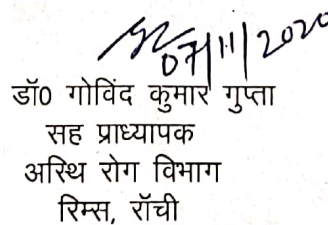 07/11/2020
डॉ0 गोविंद कुमार गुप्ता
सह प्राध्यापक
अस्थि रोग विभाग
रिम्स, रॉंची